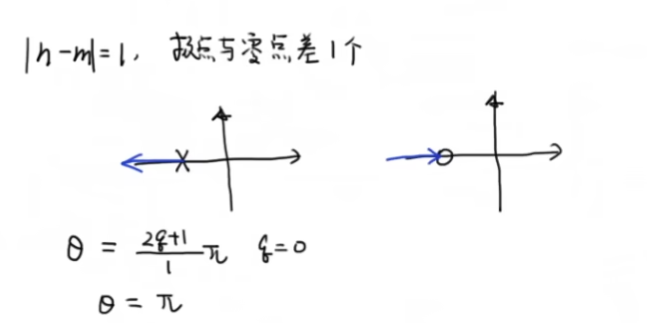 |n-m|=1, 极点与零点差1个
θ = \frac{2q+1}{1}π q=0
θ = π